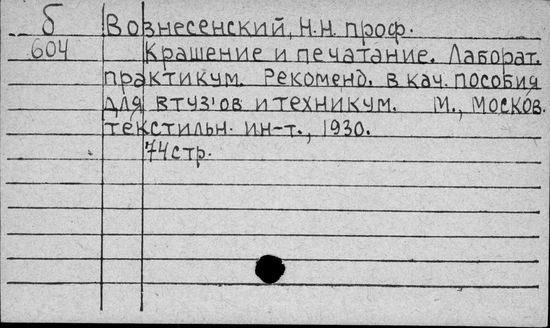 б Вознесенский, Н.Н. проф.
604 Крашение и печатание. Лаборат.
практикум. Рекоменд. в кач. пособия
для втуз'ов и техникум. М., Москов.
текстильн. ин-т., 1930.
74 стр.